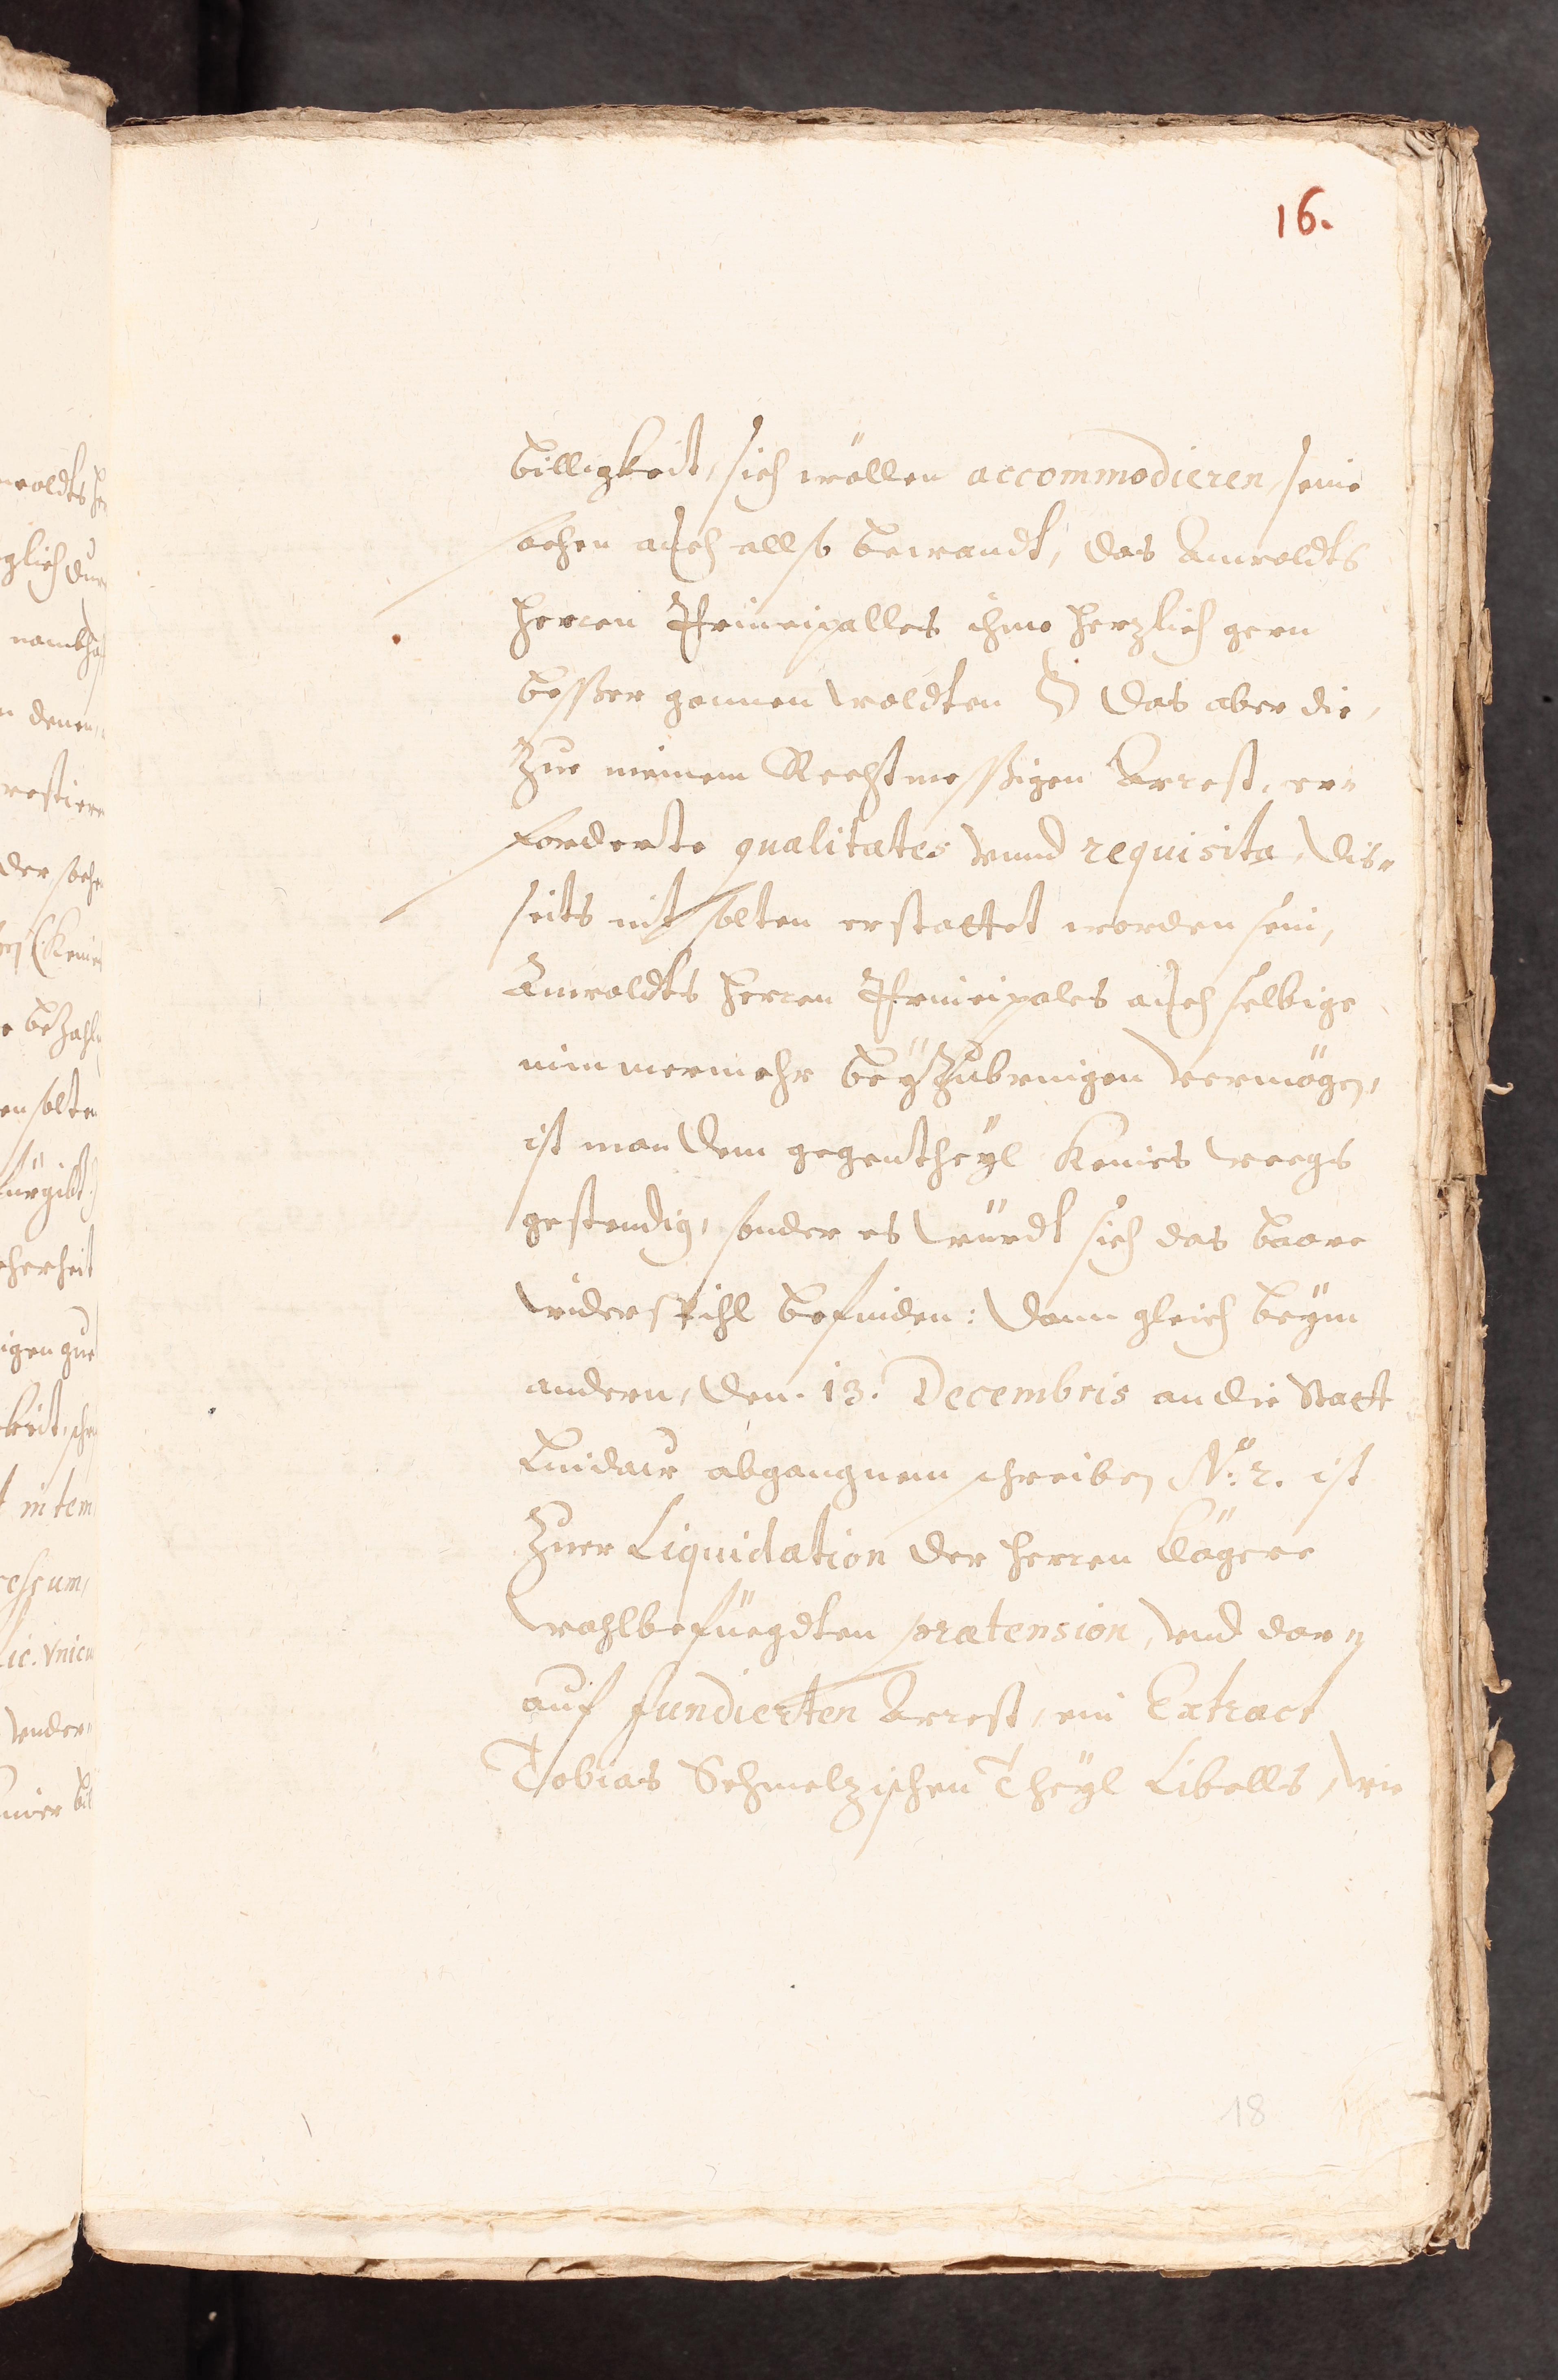 16.
billigkeit, sich wöllen accommodieren, seine
sachen auch allso bewandt, das Anwaldts
herren Principalles ihme herzlich gern
besser gonnen woldten das aber die,
Zue meinem Rechtmessigen Arrest, er-
forderte qualitates vnnd requisita, dis-
seits nit solten erstattet worden sein,
Anwaldts herren Principales auch selbige
nimmermehr beyZubringen vermögen,
ist man dem gegentheyl Keines weegs
gestendig, sonder es würdt sich das baare
widerspihl befinden: dann gleich beym
andern, den 13. Decembris an die Statt
Lindaw abgangnem schreiben No: 2. ist
Zuer Liquidation der herren Clägere
wohlbefüegdten prætension, vnd dar-
auf fundierten Arrest, ein Extract
Tobias Schmelzischen Theyl Libells, wie
18